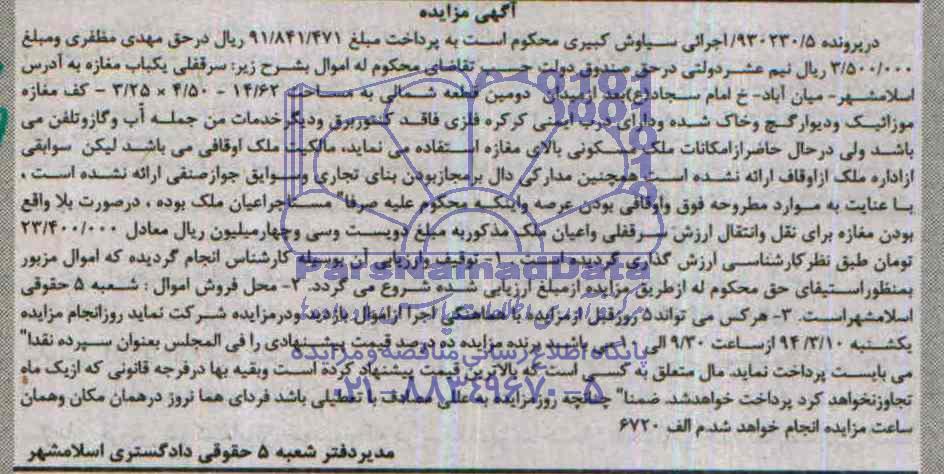 آگهی مزایده
درپرونده ۹۳۰۲۳۰/۵/اجرائی سیاوش کبیری محکوم است به پرداخت مبلغ ۹۱/۸۴۱/۴۷۱ ریال درحق مهدی مظفری ومبلغ
۳/۵۰۰/۰۰۰ ریال نیم عشردولتی درحق صندوق دولت حسب تقاضای محکوم له اموال بشرح زیر: سرقفلی یکباب مغازه به آدرس
اسلامشهر- میان آباد- خ امام سجاد(ع)بعد ازمیدان دومین قطعه شمالی به مساحت ۱۴/۶۲ - ۴/۵۰ × ۳/۲۵ - کف مغازه
موزائیک ودیوارگچ وخاک شده ودارای درب ایمنی کرکره فلزی فاقد کنتوربرق ودیگرخدمات من جمله آب وگازوتلفن می
باشد ولی درحال حاضرازامکانات ملک مسکونی بالای مغازه استفاده می نماید، مالکیت ملک اوقافی می باشد لیکن سوابقی
ازاداره ملک ازاوقاف ارائه نشده است.همچنین مدارکی دال برمجازبودن بنای تجاری وسوابق جوازصنفی ارائه نشده است ،
با عنایت به موارد مطروحه فوق واوقافی بودن عرصه واینکه محکوم علیه صرفا" مستاجراعیان ملک بوده ، درصورت بلا واقع
بودن مغازه برای نقل وانتقال ارزش سرقفلی واعیان ملک مذکوربه مبلغ دویست وسی وچهارمیلیون ریال معادل ۲۳/۴۰۰/۰۰۰
تومان طبق نظرکارشناسی ارزش گذاری گردیده است . ۱- توقیف وارزیابی آن بوسیله کارشناس انجام گردیده که اموال مزبور
بمنظوراستیفای حق محکوم له ازطریق مزایده ازمبلغ ارزیابی شده شروع می گردد. ۲- محل فروش اموال : شعبه ۵ حقوقی
اسلامشهراست. ۳- هرکس می تواند۵ روزقبل ازمزایده با هماهنگی اجرا ازاموال بازدیدودرمزایده شرکت نماید روزانجام مزایده
یکشنبه ۹۴/۳/۱۰ ازساعت ۹/۳۰ الی ۱۰ می باشد برنده مزایده ده درصد قیمت پیشنهادی را فی المجلس بعنوان سپرده نقدا"
می بایست پرداخت نماید. مال متعلق به کسی است که بالاترین قیمت پیشنهاد کرده است وبقیه بها درفرجه قانونی که ازیک ماه
تجاوزنخواهد کرد پرداخت خواهدشد. ضمنا" چنانچه روزمزایده به عللی مصادف با تعطیلی باشد فردای هما نروز درهمان مکان وهمان
ساعت مزایده انجام خواهد شد.م الف ۶۷۲۰
مدیردفتر شعبه ۵ حقوقی دادگستری اسلامشهر
ParsNamadData
پایگاه اطلاع رسانی مناقصه و مزایده
۰۲۱-۸۸۳۴۹۶۷۰-۵